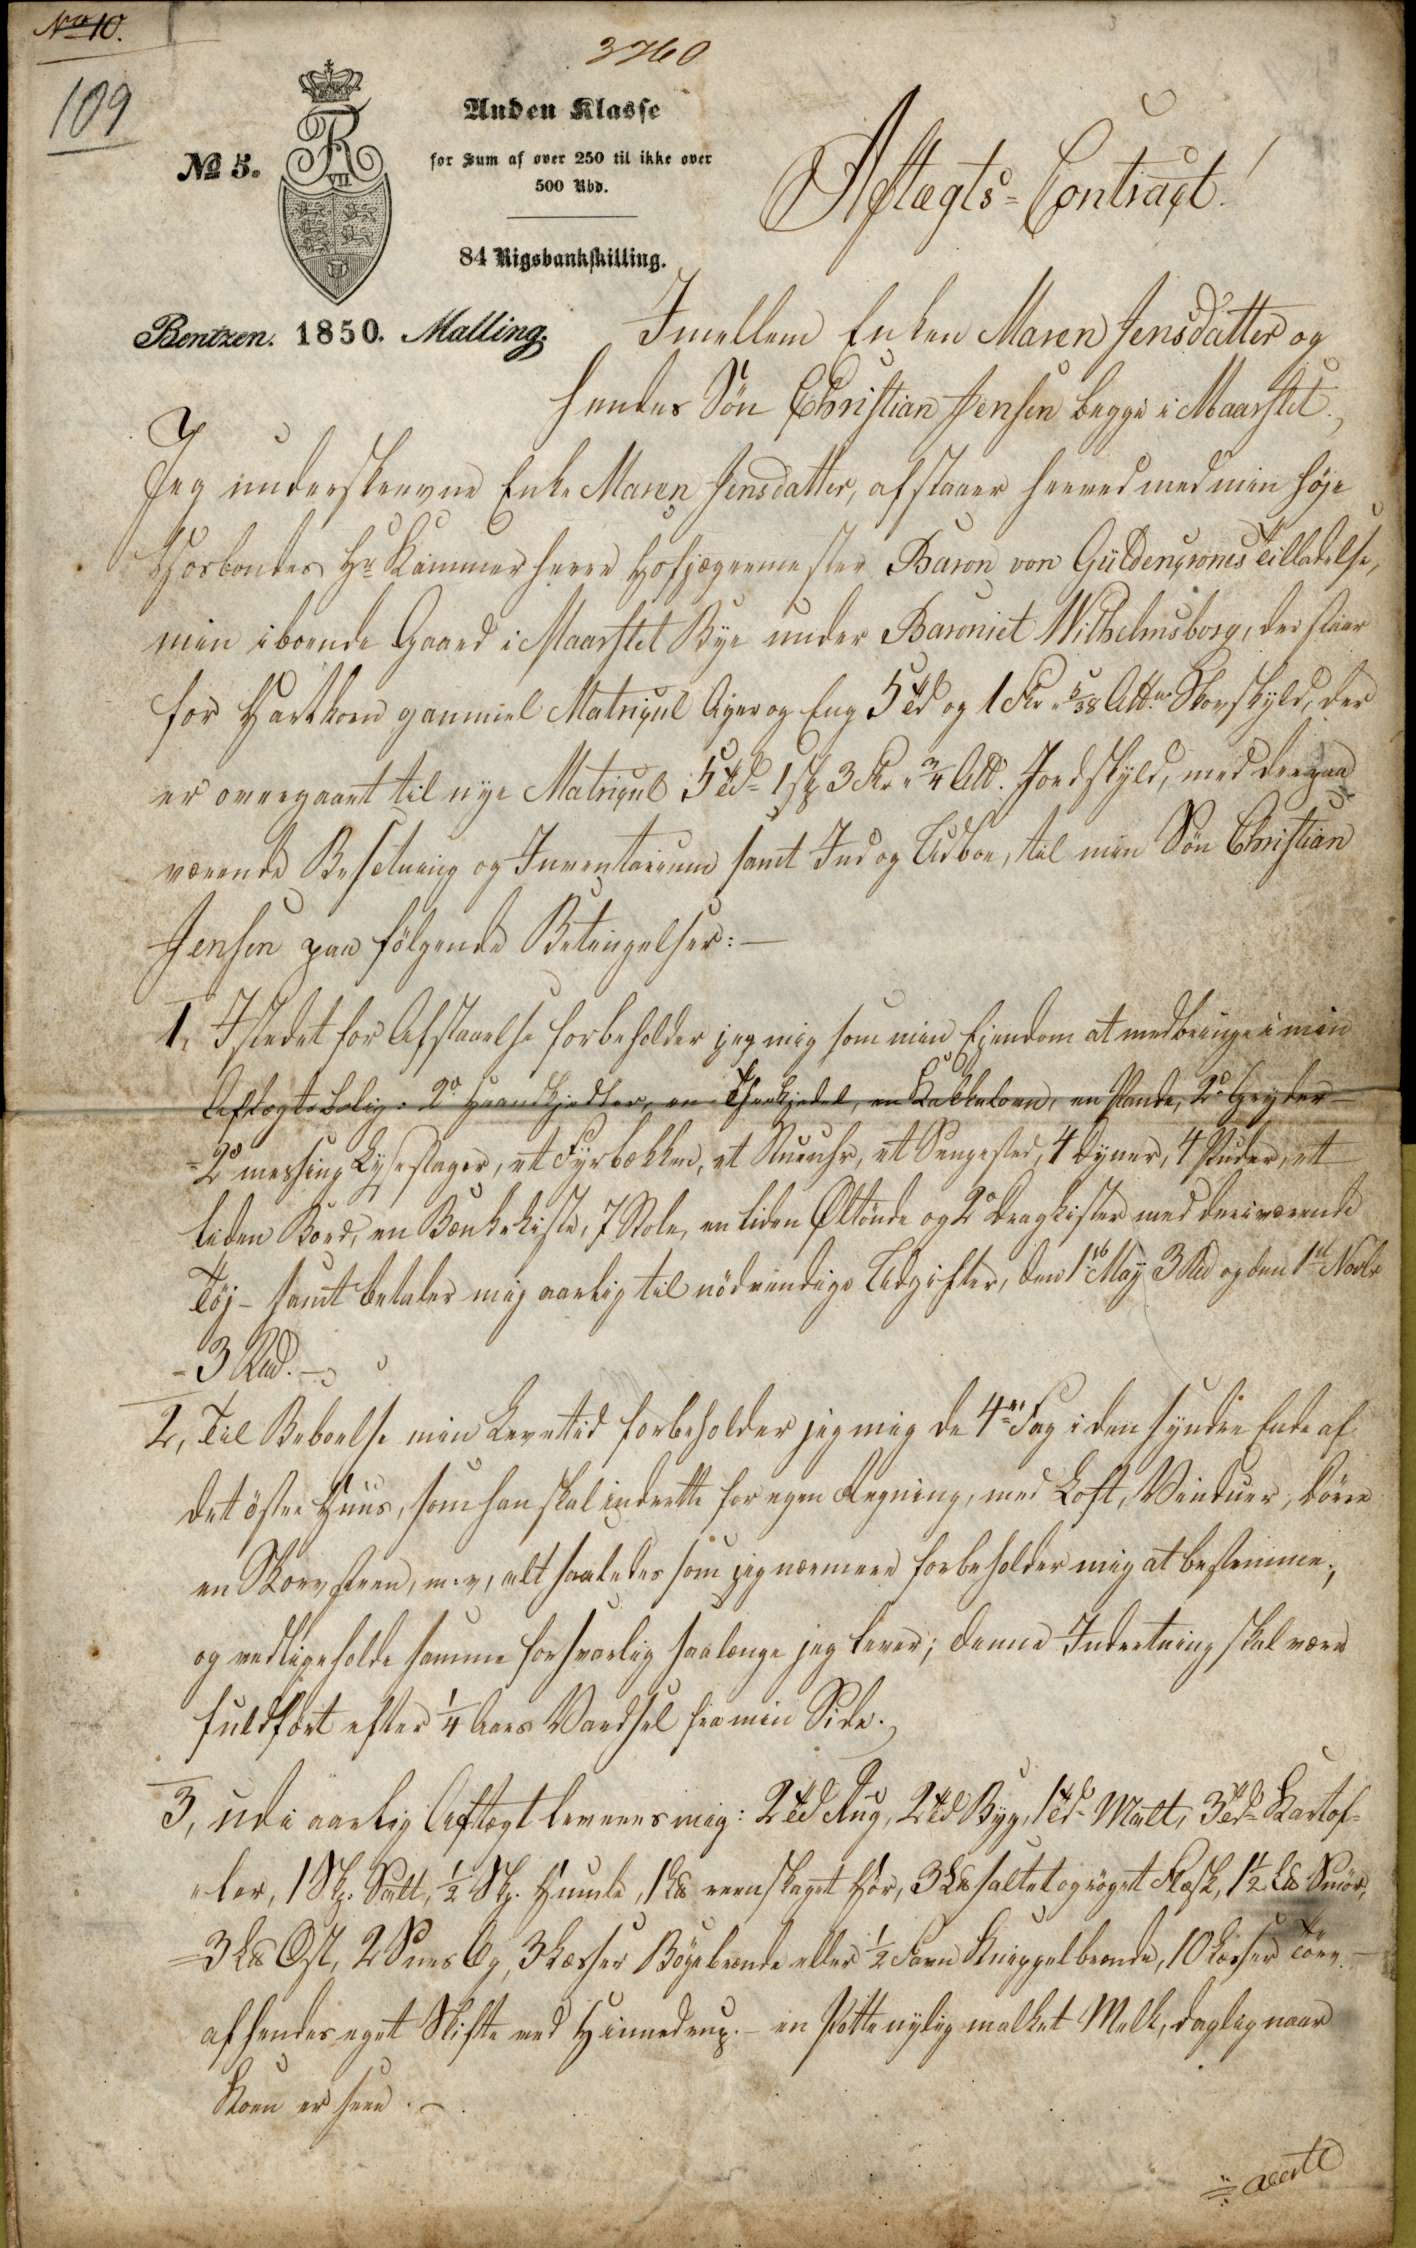 No 10.
3760
109
No 5.
VII
Anden Klasse
for Sum af over 250 til ikke over
500 Rbd.
84 Rigsbankskilling.
Bentzen. 1850. Malling.
Aftægts-Contract!
Imellem Enken Maren Jensdatter og
hendes Søn Christian Jensen begge i Maarslet.,
Jeg underskrevne Enke Maren Jensdatter, afstaaer herved med min høje
Hosbondes Hr Kammerherre Hofjægermester Baron von Güldencrones Tilladelse,
min iboende Gaard i Maarslet Bye under Baroniet Wilhelmsborg, der staaer
for Hartkorn gammel Matricul Ager og Eng 5 Td og 1 Fkr Alb. Skovskyld, der
er overgaaet til nye Matricul 5 Td 1 Skp 3 Fkr ¾ Alb. Jordskyld, med derpaa
værende Besætning og Inventarium samt Ind og Udboe, til min Søn Christian
Jensen paa følgende Betingelser:—
1, Istedet for Afstaaelse forbeholder jeg mig som min Ejendom at medbringe i min
Aftægtsbolig: 2de Haandkjedler, en Theekjedel, en Kakkelovn, en Pande, 2de Gryder—
2de messing Lysestager, et Fyrbækken, et Stueuhr, et Sengested, 4 Dyner, 4 Puder, et
liden Bord, en Bænkekiste, 7 Stole, en liden Øltønde og 2de Dragkister med deri værende
Tøj— samt betaler mig aarlig til nødvendige Udgifter, den 1te May 3 Rd og den 1te Novbr
- 3 Rd.—
2, Til Beboelse min Levetid forbeholder jeg mig de 4re Fag i den syndre Ende af
det østre Huus, som han skal indrette for egen Regning, med Loft, Vinduer, Dørre
en Skorsteen, m.v, alt saaledes som jeg nærmere forbeholder mig at bestemme.,
og vedligeholde samme forsvarlig saalænge jeg lever; denne Indretning skal være
fuldført efter ¼ Aars Varsel fra min Side.
3, Udi aarlig Aftægt leveres mig: 2 Td Rug, 2 Td Byg, 1 Td Malt, 3 Td Kartof-
=ler, 1 Skp. Salt, ½ Skp. Humle, 1 Lb reenskaget Hør, 3 Lb saltet og røget Flæsk, 1½ Lb Smør,
=3 Lb Ost, 2 Snes Eg, 3 Læsser Bøgebrænde eller ½ Favn Knippelbrænde, 10 Læsser Tørv—
af hendes eget Skifte ved Hinnedrup.— en Potte nylig malket Melk, daglig naar
Koen er
verte